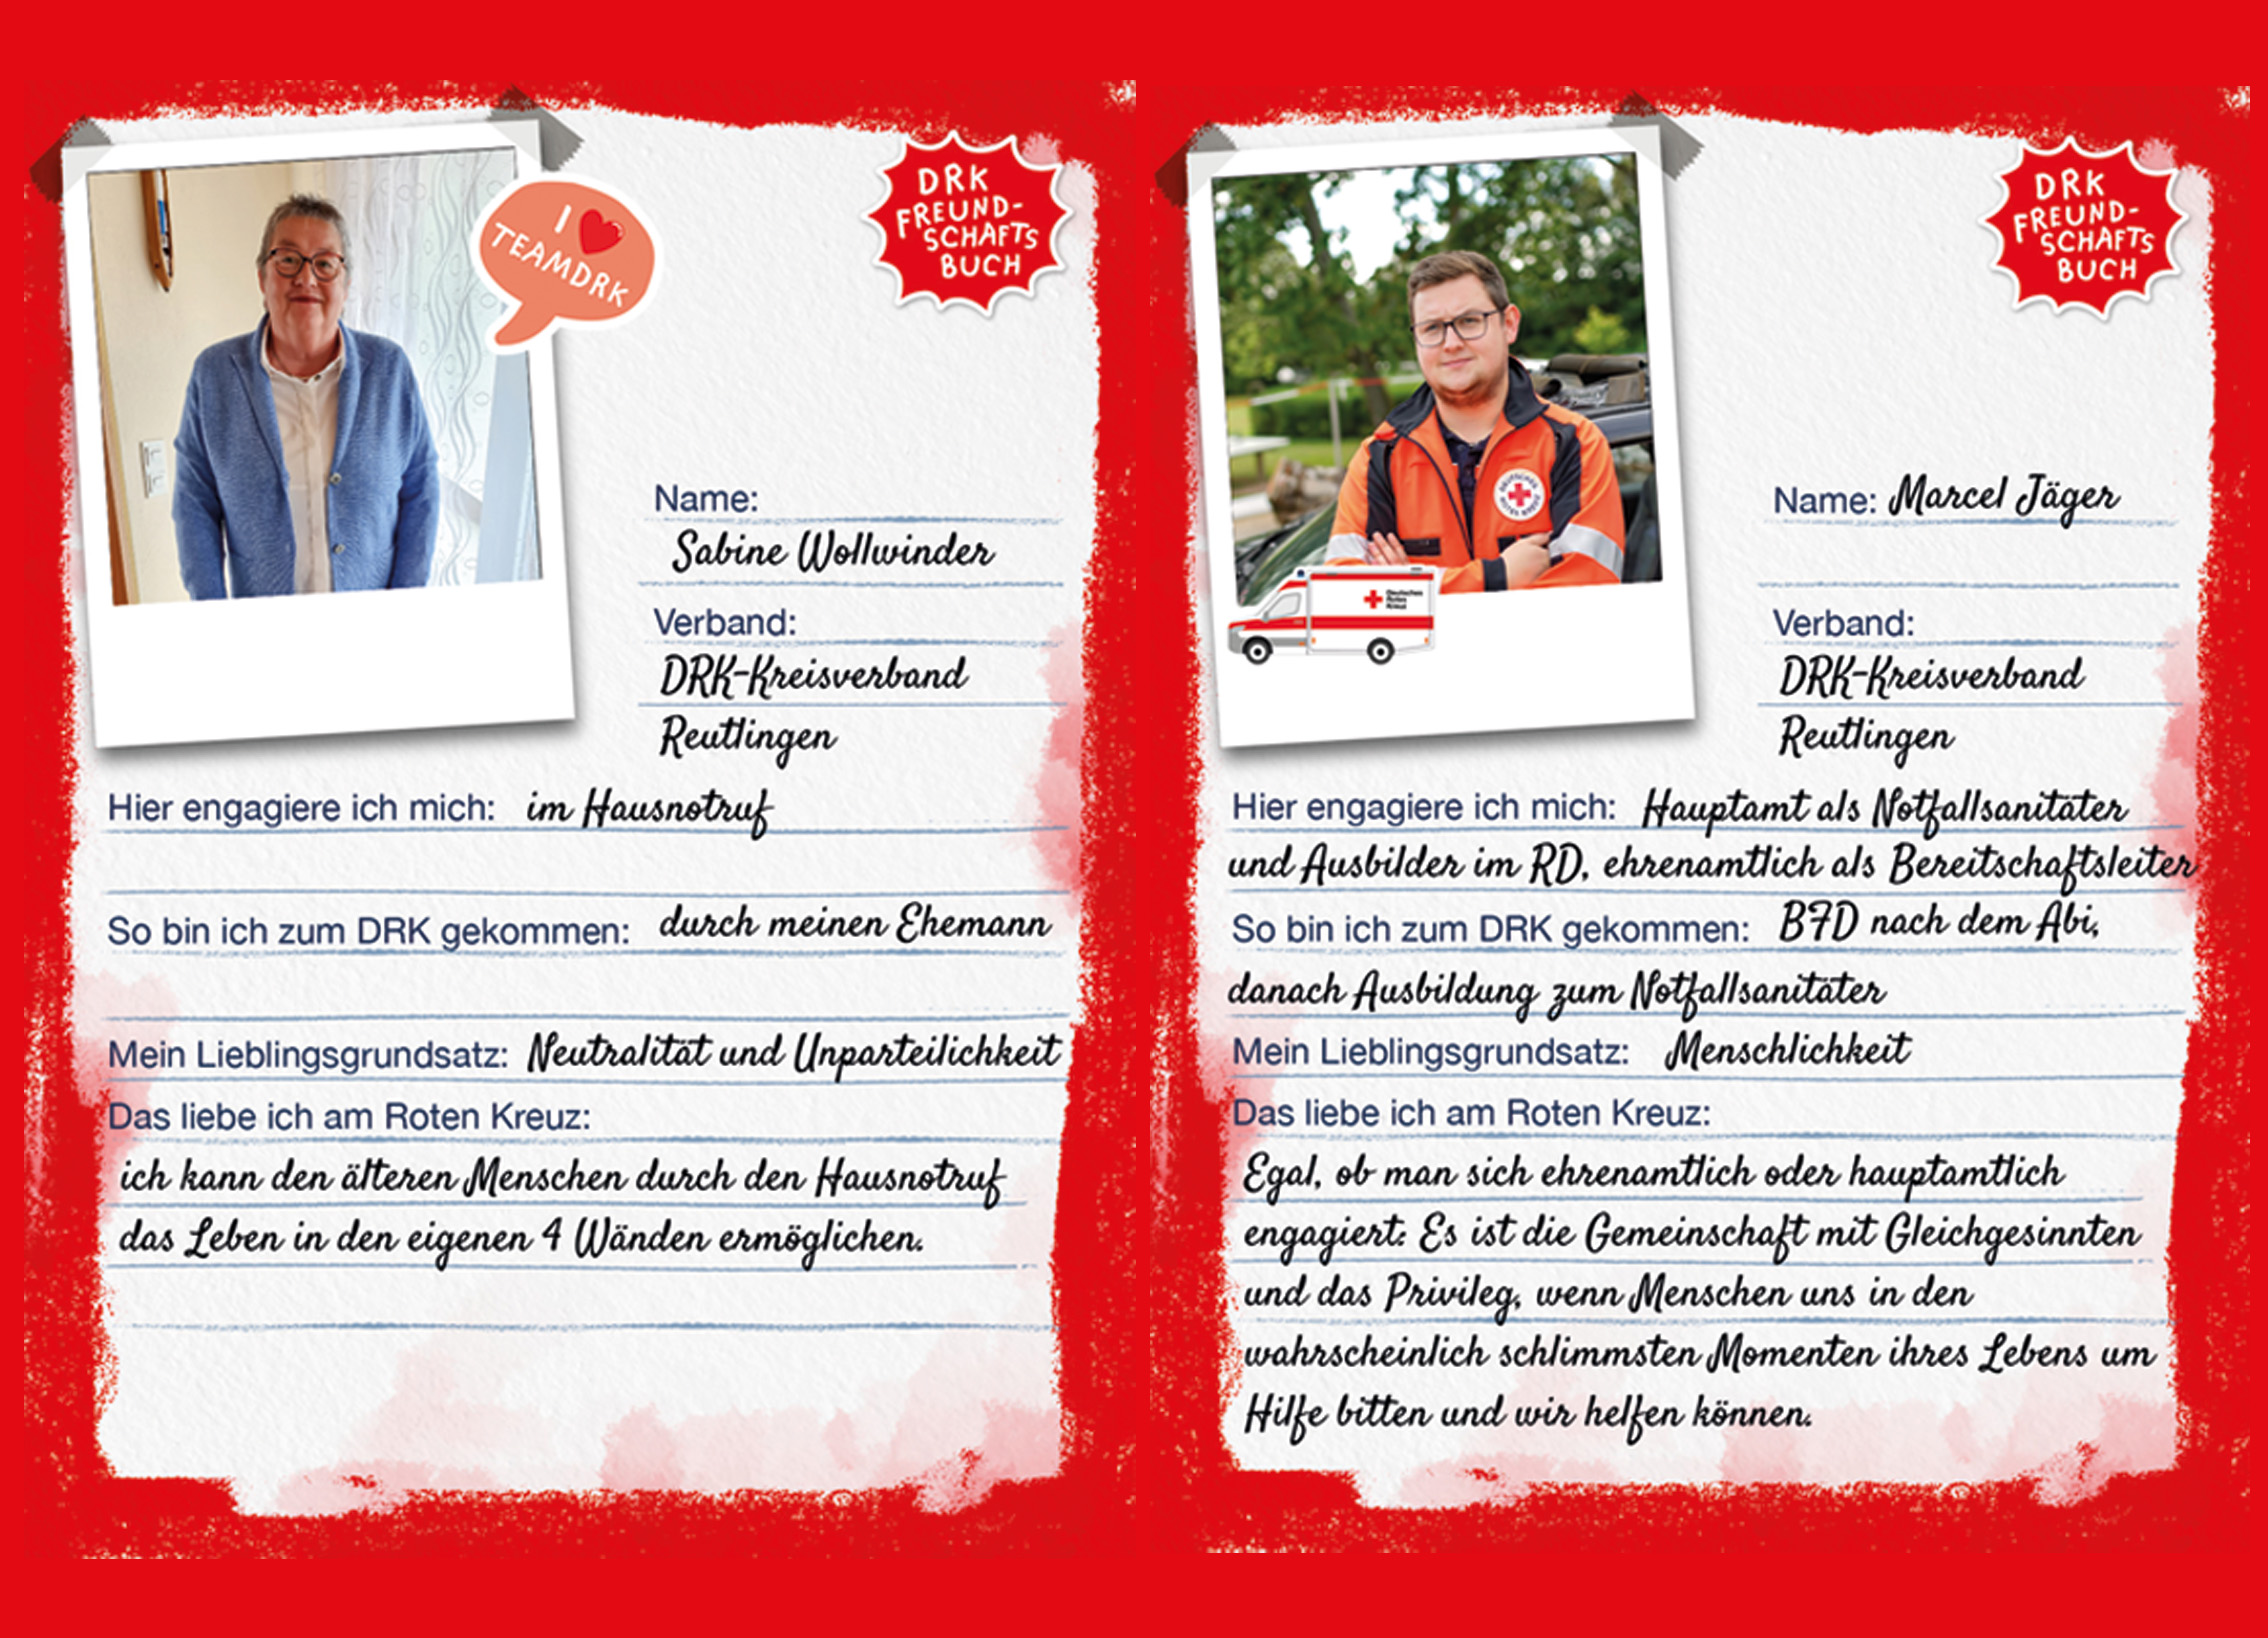 I ❤
TEAMDRK
DRK
FREUND-
SCHAFTS
BUCH
Name:
Sabine Wollwinder
Verband:
DRK-Kreisverband
Reutlingen
Hier engagiere ich mich: im Hausnotruf
So bin ich zum DRK gekommen: durch meinen Ehemann
Mein Lieblingsgrundsatz: Neutralität und Unparteilichkeit
Das liebe ich am Roten Kreuz:
ich kann den älteren Menschen durch den Hausnotruf
das Leben in den eigenen 4 Wänden ermöglichen.
DRK
FREUND-
SCHAFTS
BUCH
DEUTSCHES
ROTES KREUZ
Deutsches
Rotes
Kreuz
Name: Marcel Jäger
Verband:
DRK-Kreisverband
Reutlingen
Hier engagiere ich mich: Hauptamt als Notfallsanitäter
und Ausbilder im RD, ehrenamtlich als Bereitschaftsleiter
So bin ich zum DRK gekommen: BFD nach dem Abi,
danach Ausbildung zum Notfallsanitäter
Mein Lieblingsgrundsatz: Menschlichkeit
Das liebe ich am Roten Kreuz:
Egal, ob man sich ehrenamtlich oder hauptamtlich
engagiert: Es ist die Gemeinschaft mit Gleichgesinnten
und das Privileg, wenn Menschen uns in den
wahrscheinlich schlimmsten Momenten ihres Lebens um
Hilfe bitten und wir helfen können.